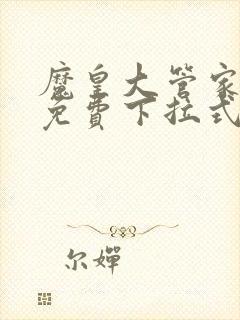 魔皇大管家
免費下拉式
尔嬋